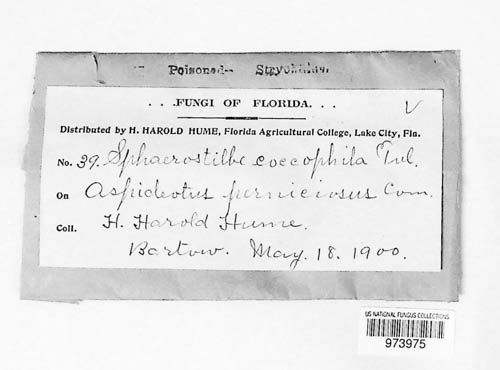 Poisoned-- Strychnine.
. . .FUNGI OF FLORIDA. . .
Distributed by H. HAROLD HUME, Florida Agricultural College, Lake City, Fla.
No. 39. Sphaerostilbe coccophila Tul.
On Aspideotus perniciosus Com.
Coll. H. Harold Hume.
Bartow. May. 18. 1900.
US NATIONAL FUNGUS COLLECTIONS
973975